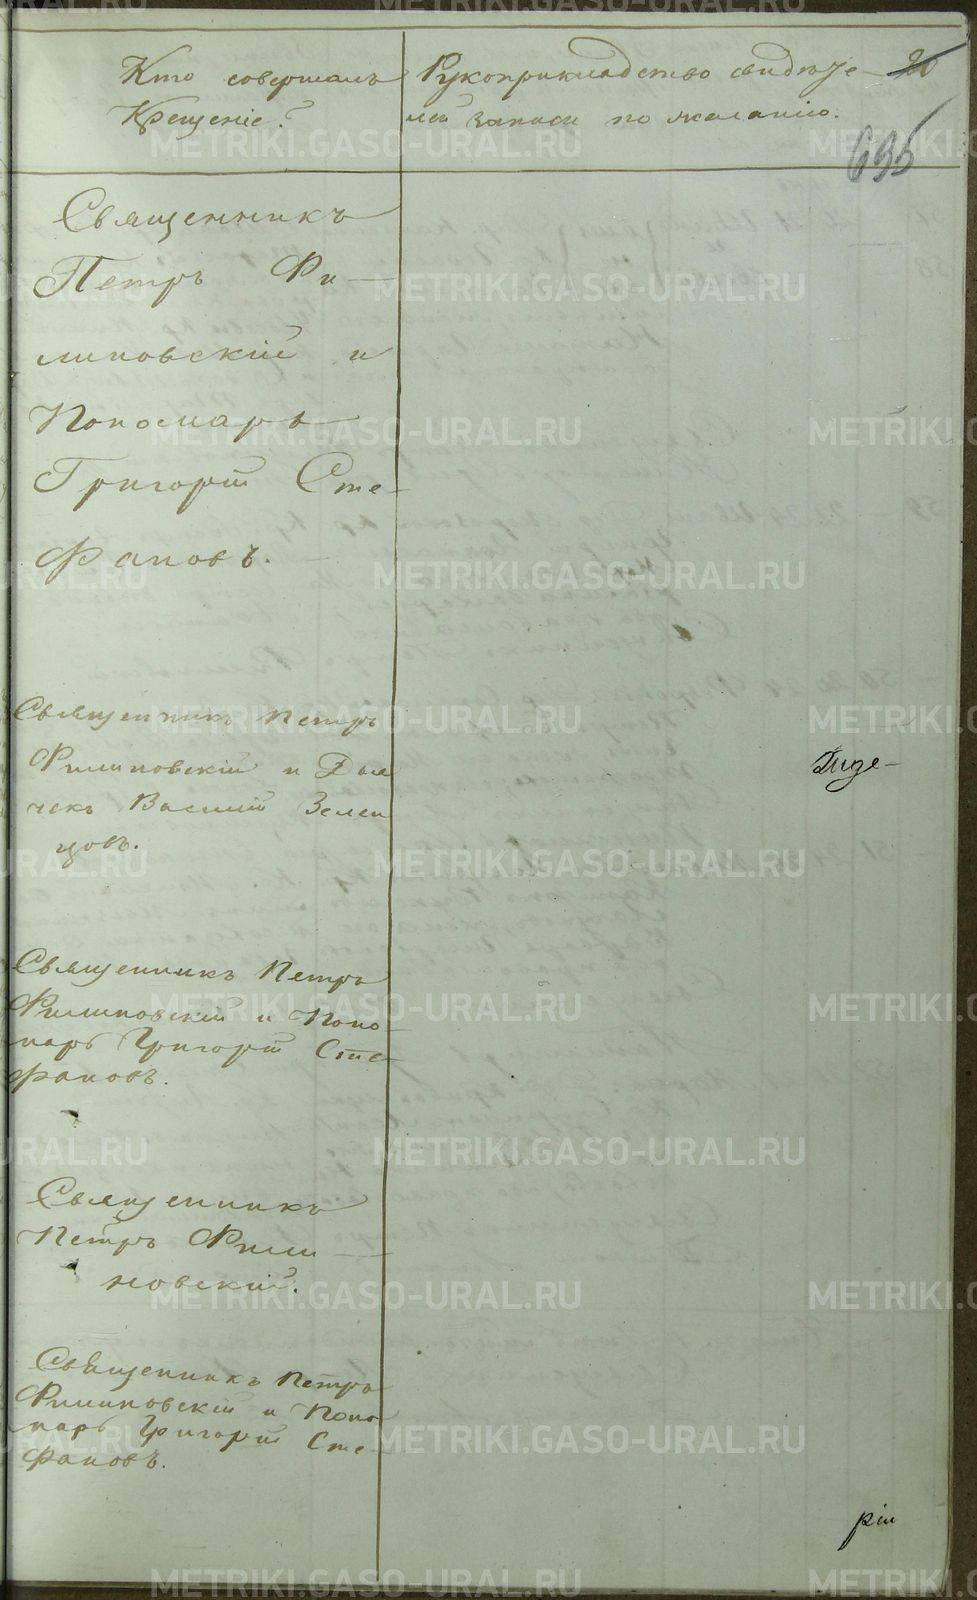 Кто совершалъ
Крещеніе?
Рукоприкладство свидѣте-
лей записи по желанію.
20
695
Священникъ
Петръ Фи-
липовскій и
Пономарь
Григорій Сте-
фановъ.
Священникъ Петръ
Филиповскій и Дья
чекъ Василій Зелен
цовъ.
Священникъ Петръ
Филиповскій и Поно
марь Григорій Сте-
фановъ.
Священникъ
Петръ Фили
повскій.
Священникъ Петръ
Филиповскій и Поно
марь Григорій Сте-
фановъ.
рій
METRIKI.GASO-URAL.RU